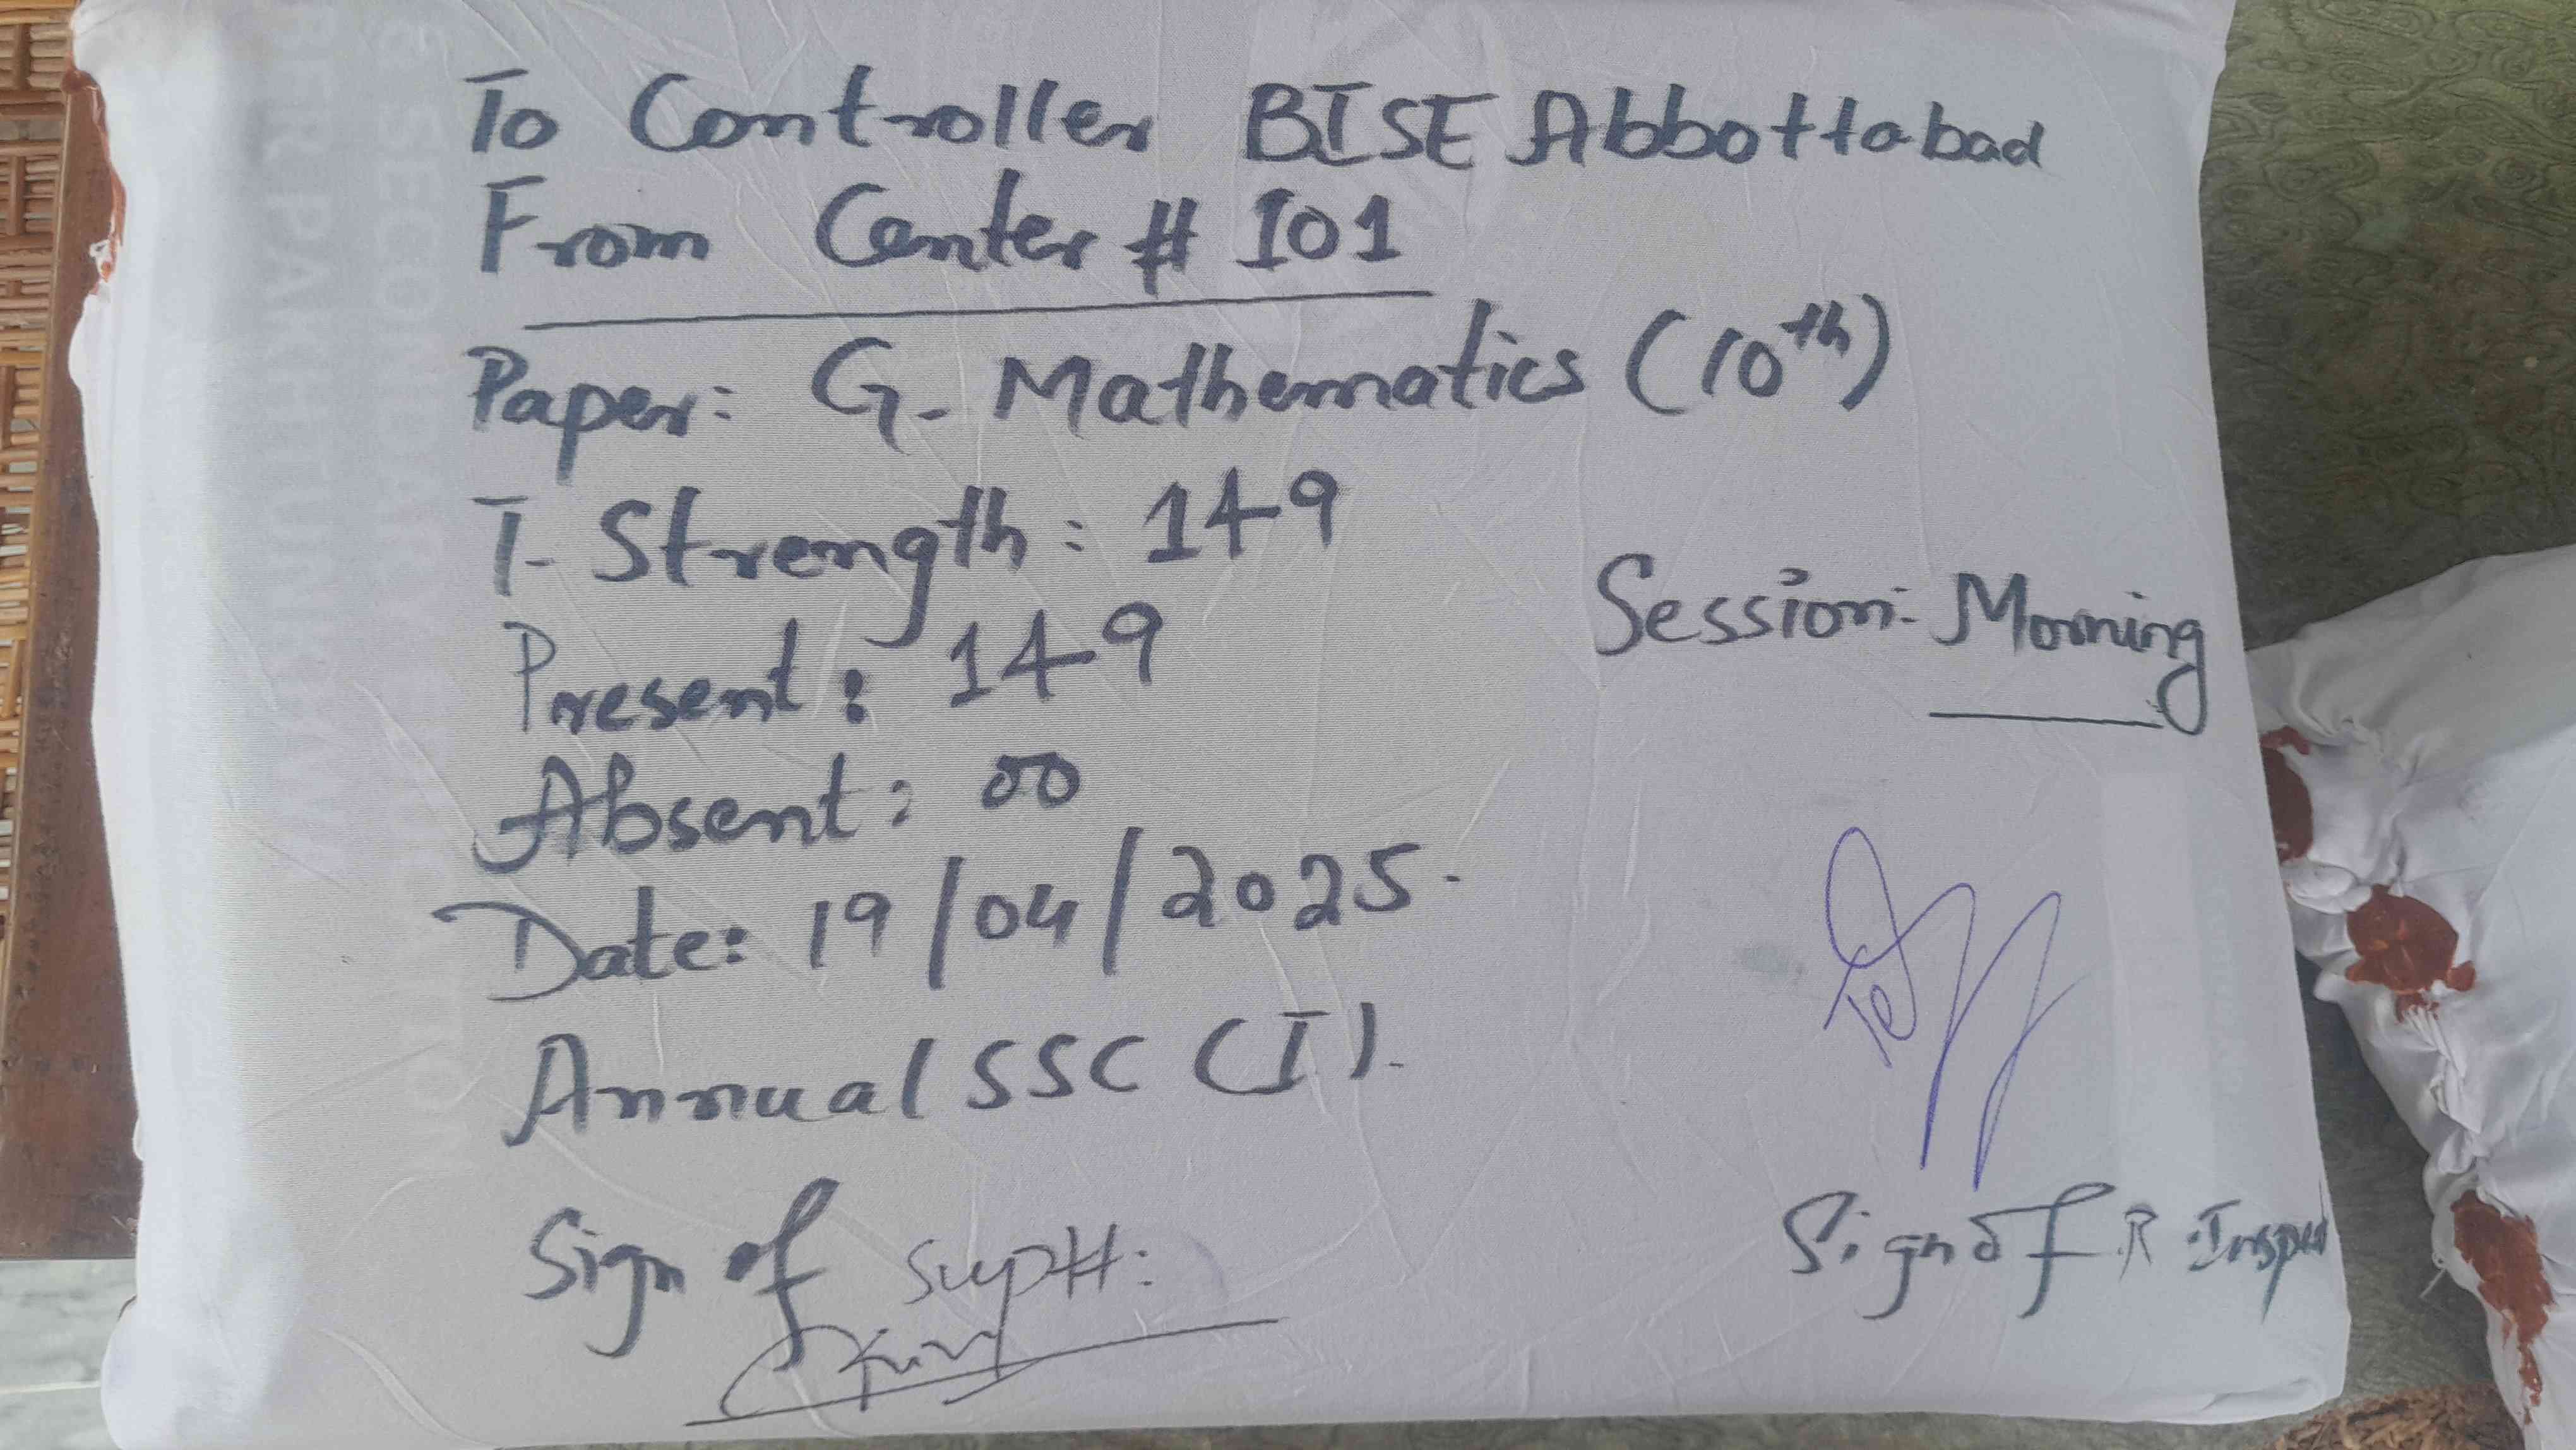 To Controller BISE Abbottabad
From Center # 101
Paper: G. Mathematics (10th)
T. Strength: 149
Session: Morning
Present: 149
Absent: 00
Date: 19/04/2025.
Annual SSC (I).
Sign of Supdtt:
Sign of R. Inspect